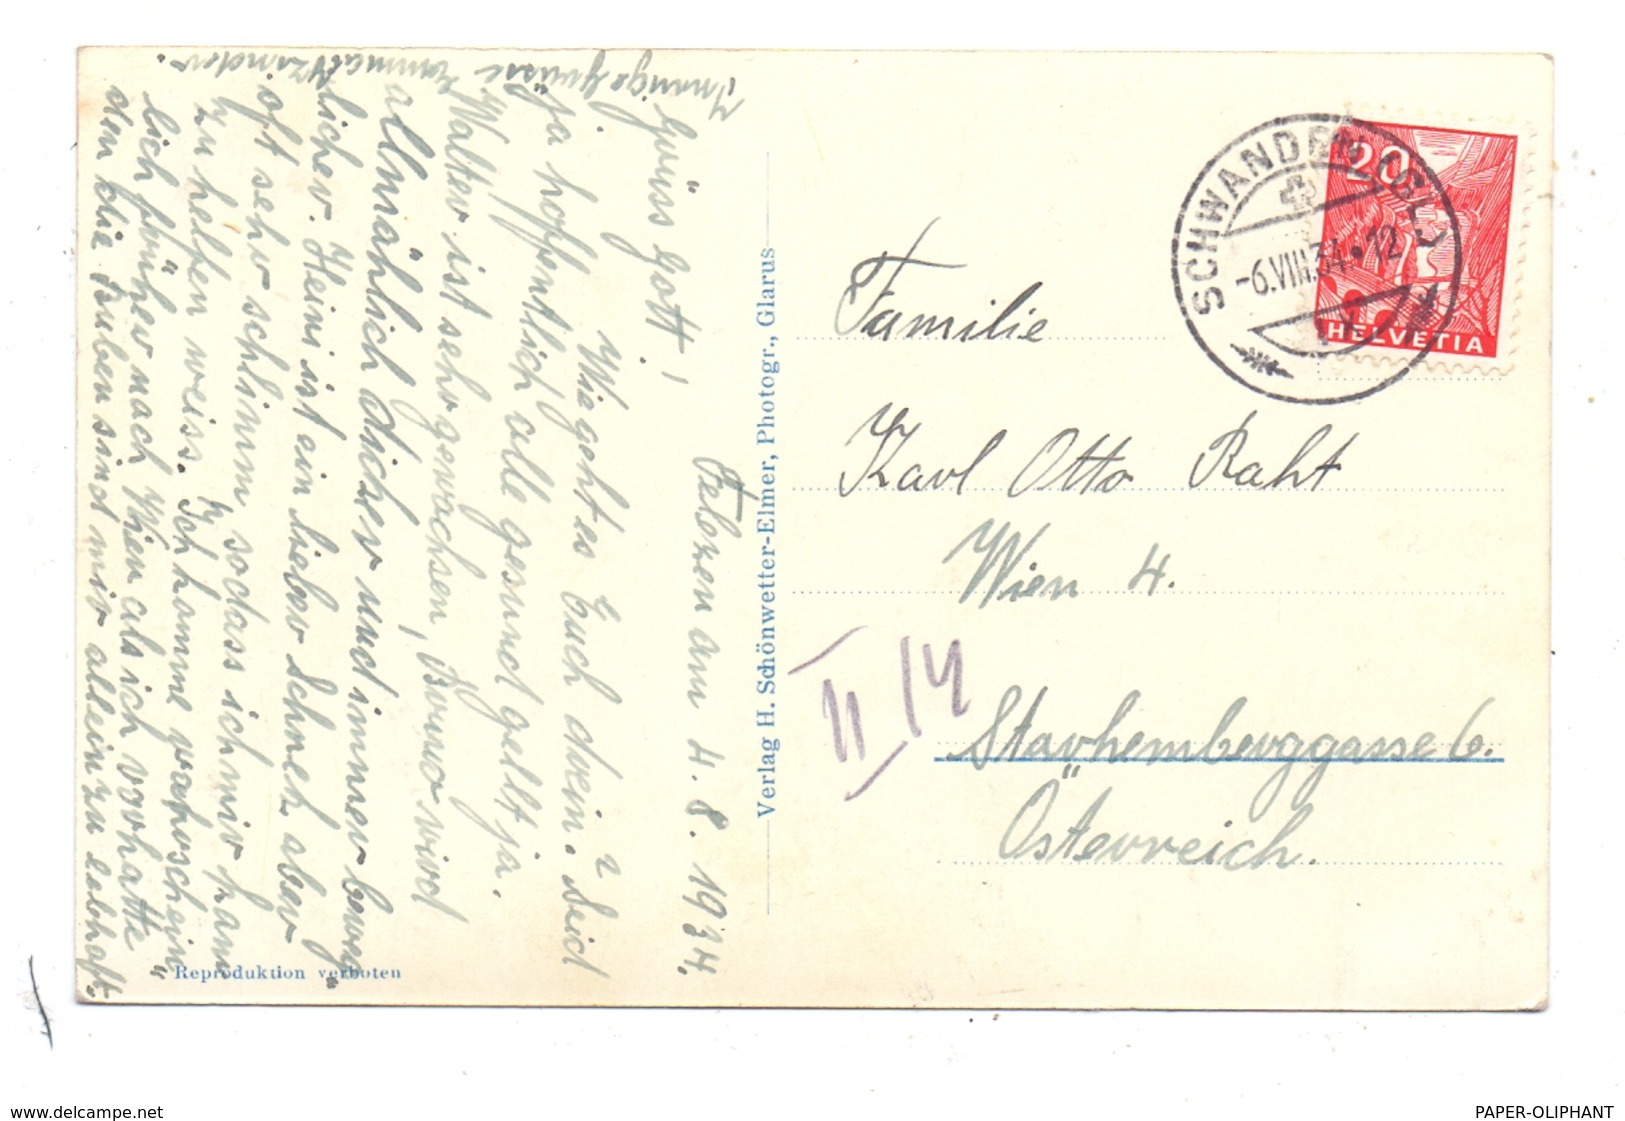 Felozen am 4. 8. 1934.
Grüss Gott!
Wie geht es Euch drein? Seid
ja hoffentlich alle gesund gelt ja.
Walter ist sehr gewachsen, Bruno wird
allmählich dicker und immer beweg-
licher. Heini ist ein lieber Schneck, aber
oft sehr schlimm, sodass ich mir kaum
zu helfen weiss. Ich komme wahrschein-
lich früher nach Wien als ich vorhatte
denn die Buben sind mir allein zu lebhaft.
Innige Grüsse
Verlag H. Schönwetter-Elmer, Photogr., Glarus
Reproduktion verboten
SCHWANDEN (GL.)
-6.VIII.34.12
20
HELVETIA
Familie
Karl Otto Raht
Wien 4.
II/4
Starhemberggasse 6.
Österreich.
www.delcampe.net
PAPER-OLIPHANT